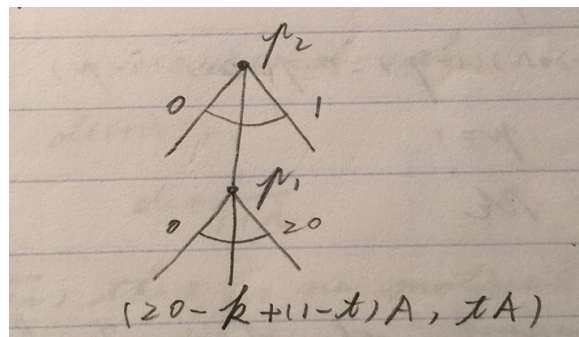 p₂
0 1
p₁
0 20
(20-k+(1-t)A, tA)